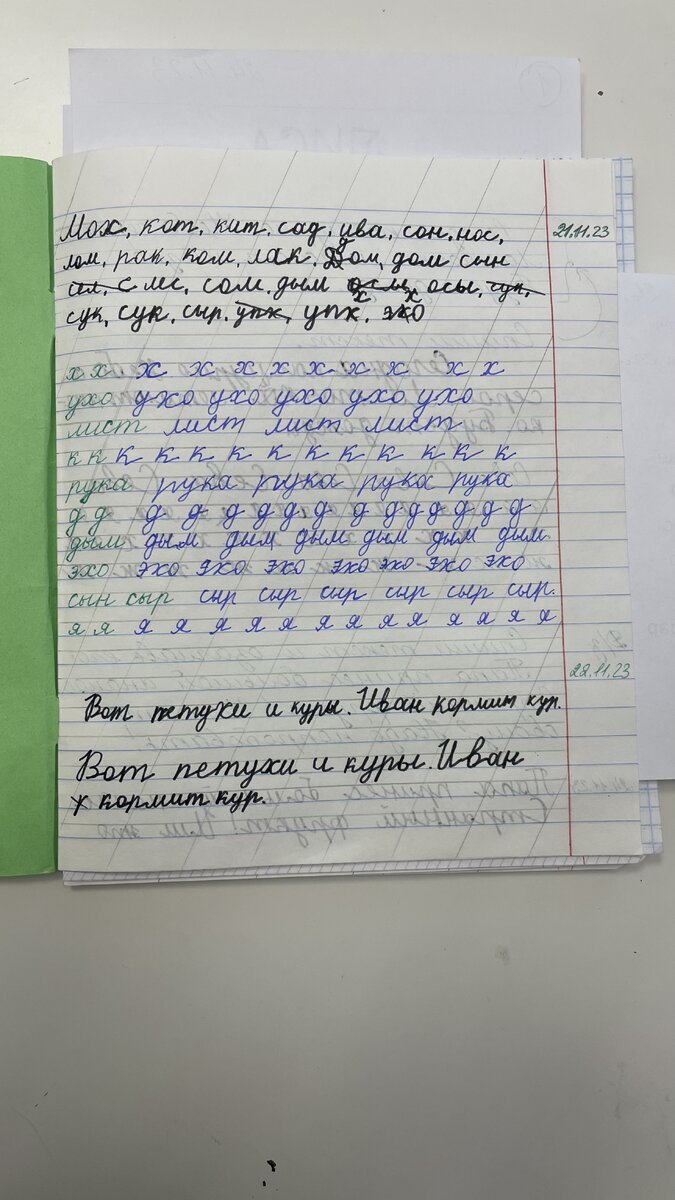 21.11.23
Мох, кот, кит, сад, ива, сон, нос,
лом, рак, ком, лак, Дом, дом сын
сом, с мс, сом, дым осы, осы, сук,
сук, сук, сыр, упх, упх, эхо
х х х х х х х х х х х
ухо ухо ухо ухо ухо ухо
лист лист лист лист
к к к к к к к к к к к к к к
рука рука рука рука рука
д д д д д д д д д д д д д д
дым дым дым дым дым дым дым
эхо эхо эхо эхо эхо эхо эхо эхо
сын сыр сыр сыр сыр сыр сыр сыр.
я я я я я я я я я я я я я я
22.11.23
Вот петухи и куры. Иван кормит кур.
Вот петухи и куры. Иван
кормит кур.